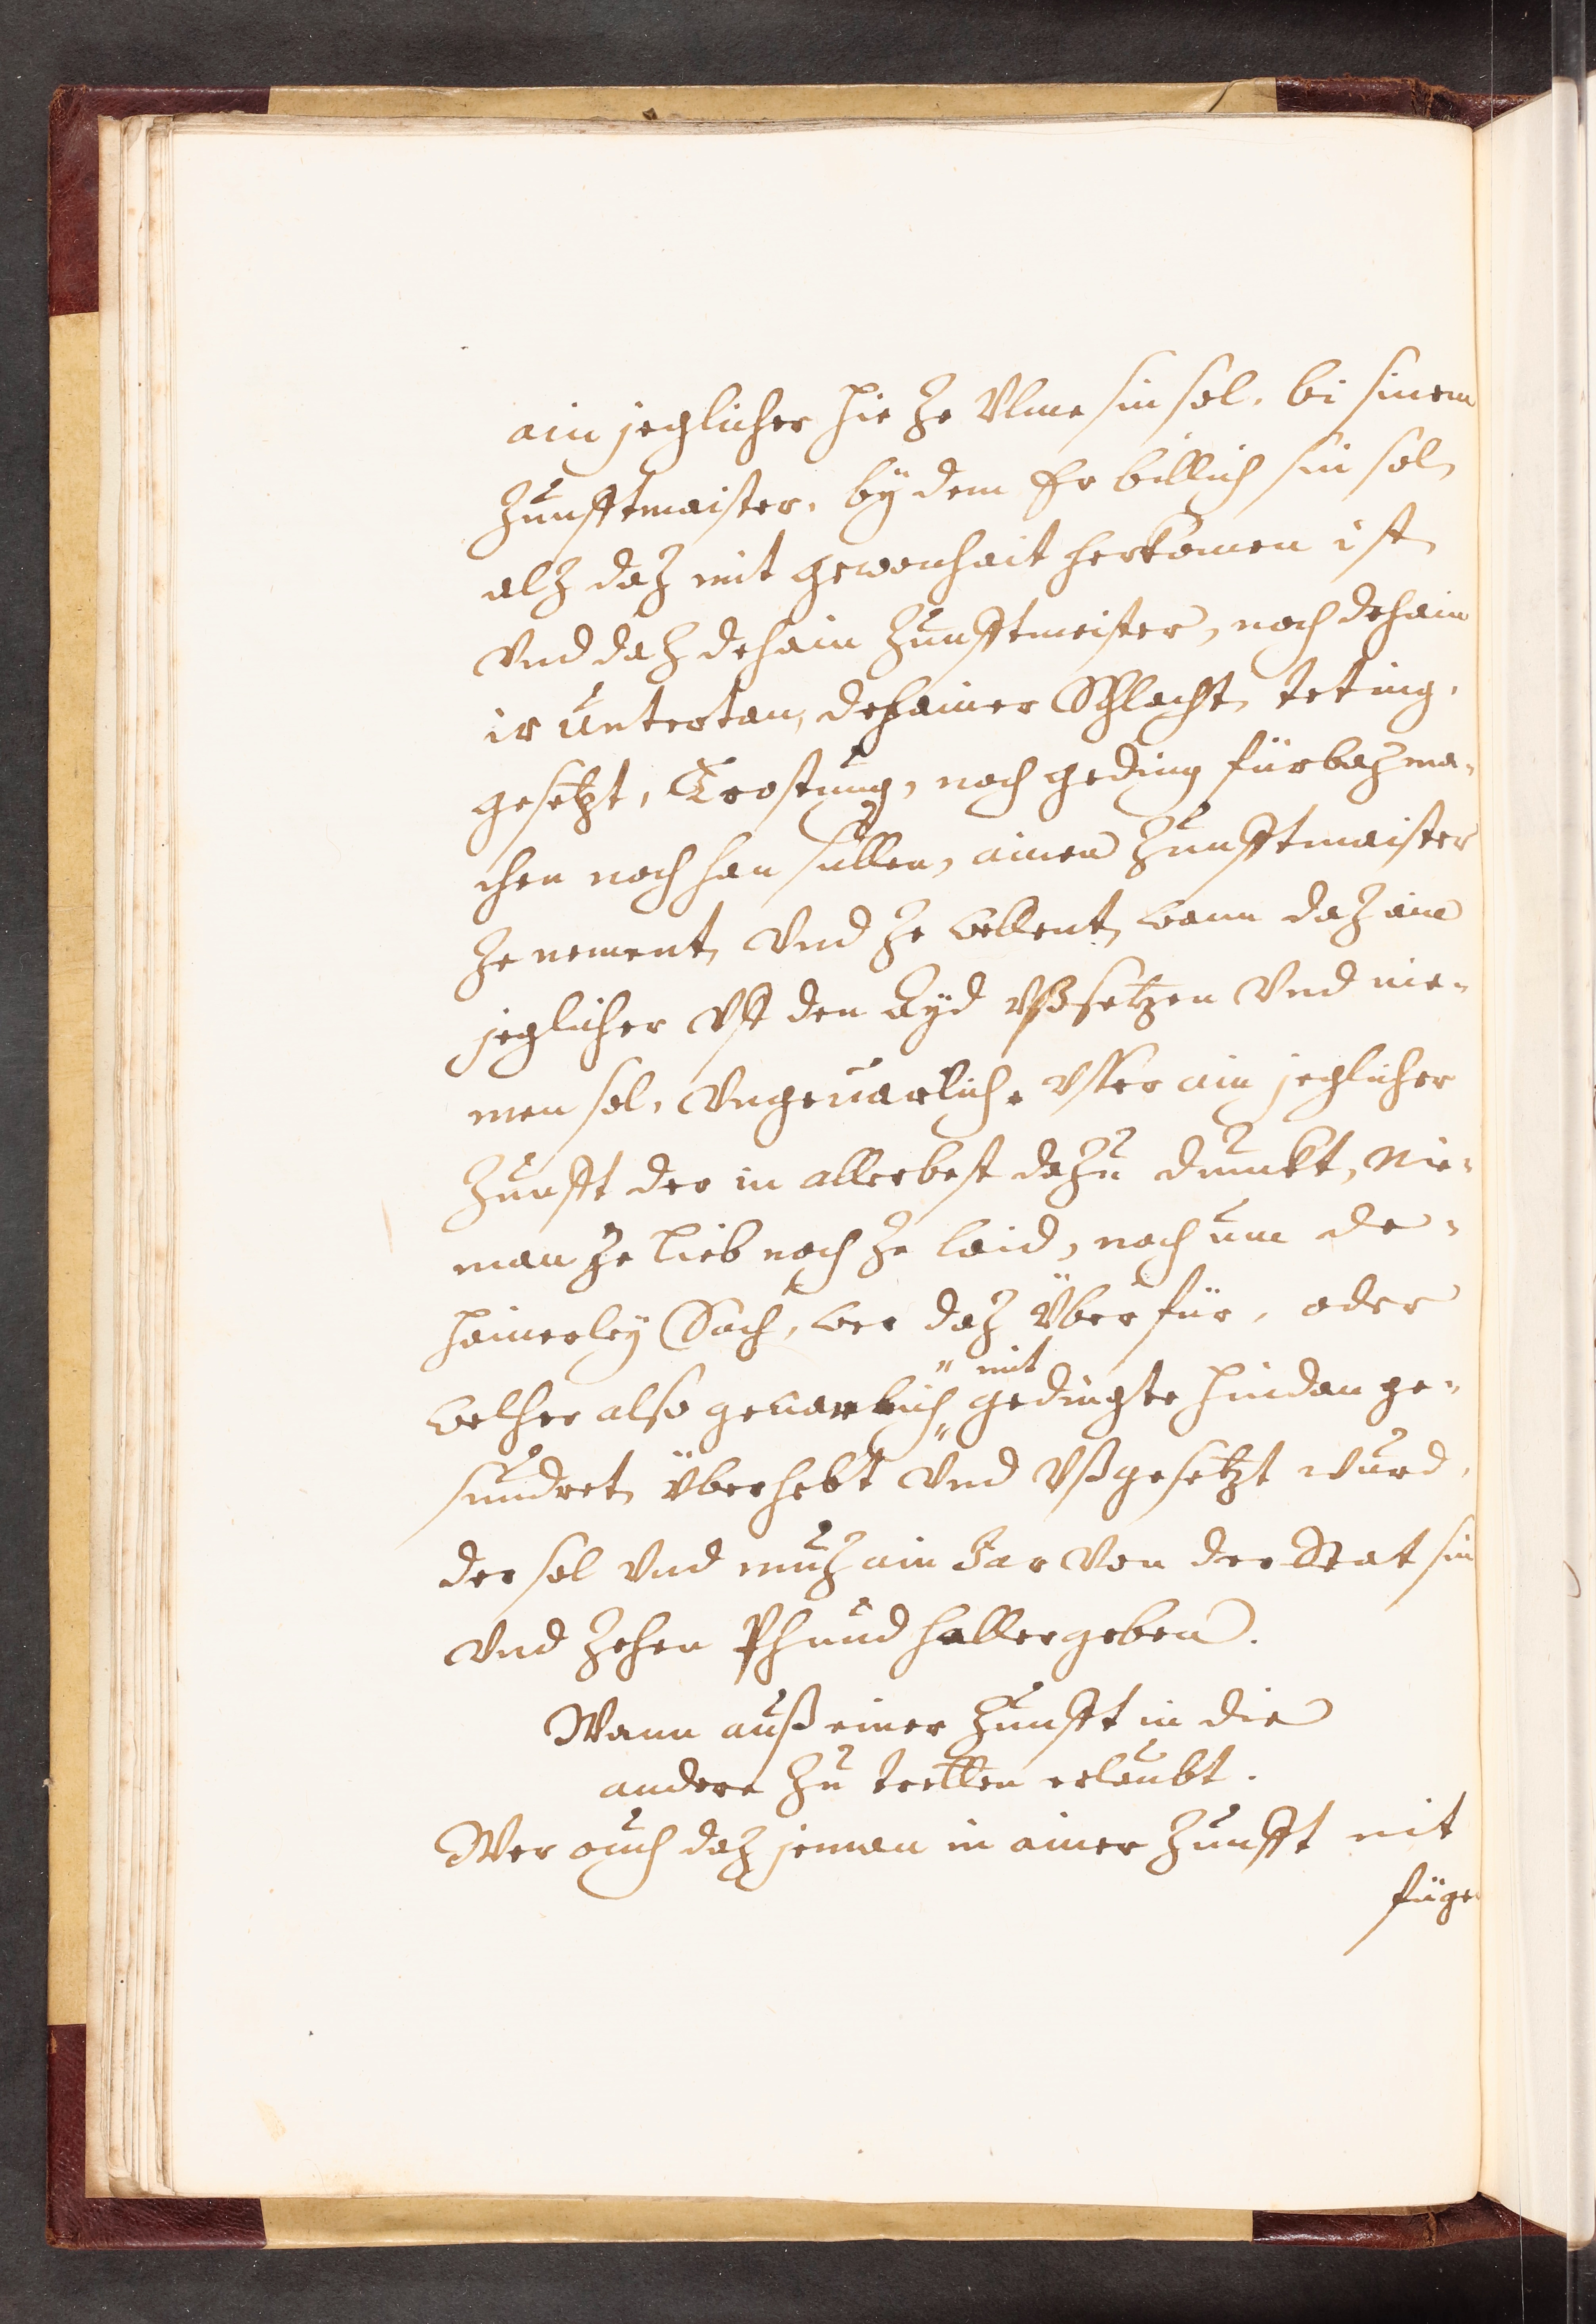 ain jeglicher hie ze Vlme sin sol, bi sinem
Zunfftmaister, bÿ dem Er billich sin sol,
alz daz mit gewonhait herkomen ist,
Vnd daz dehain Zunfftmeister, noch dehain
ir Untertan, dehainer Schlacht, teting,
gesetzt, Trostung, noch geding fürbaz ma-
chen noch han sullen, ainen Zunfftmaister
ze nement, Vnd ze wellent, wann daz ain
jeglicher Vff den Ayd Vßsetzen Vnd nie-
men sol, Vngeuarlich, Vsser ain jeglicher
Zunfft der in allerbest dazu dunkt, Nie-
man ze lieb noch ze laid, noch um de-
hainerley Sach, wer daz Über für, oder
welher also geuarlich mit gedingte hindan ge-
sundret, überhebt Vnd Vßgesetzt wurd,
der sol Vnd muz ain Jar Von der Stat sin
Vnd zehen Phund haller geben.
Wann auß einer Zunfft in die
andere zu tretten erlaubt.
Wer ouch daz jeman in ainer Zunfft nit
füge